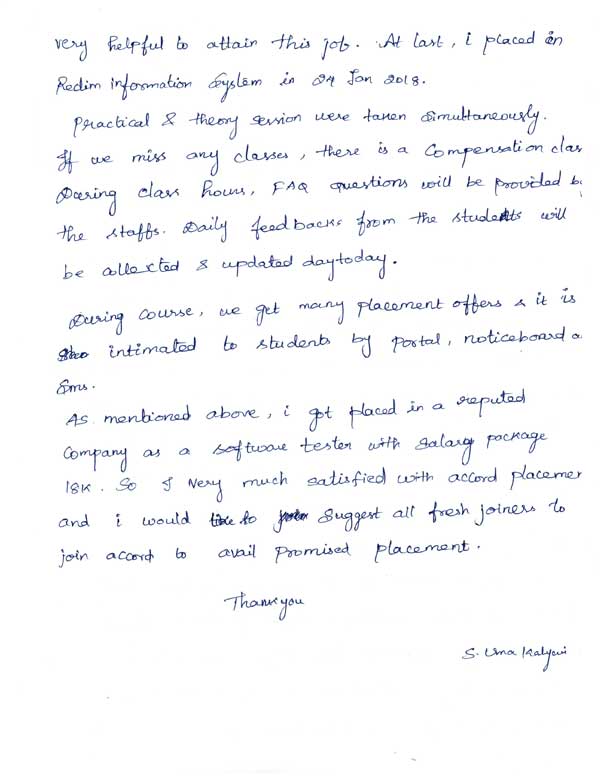 very helpful to attain this job. At last, i placed in
Redim information System in 24 Jan 2018.
Practical & theory session were taken Simultaneously.
If we miss any classes, there is a Compensation clas
During class hours, FAQ questions will be provided b
the staffs. Daily feedbacks from the students will
be collected & updated daytoday.
During course, we get many placement offers & it is
intimated to students by portal, noticeboard a
Sms.
As mentioned above, i got placed in a reputed
Company as a software tester with Salary package
18K. So I very much satisfied with accord placemen
and i would like to Suggest all fresh joiners to
join accord to avail Promised placement.
Thankyou
S. Uma Kalyani